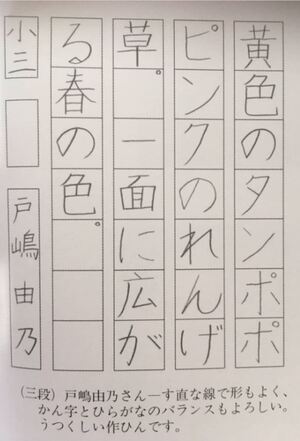 黄色のタンポポ
ピンクのれんげ
草。一面に広が
る春の色。
小三
戸嶋由乃
(三段) 戸嶋由乃さん―す直な線で形もよく、
かん字とひらがなのバランスもよろしい。
うつくしい作ひんです。